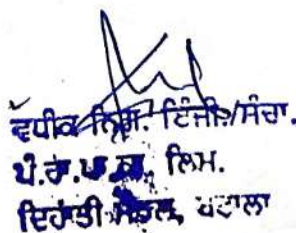 ਵਧੀਕ ਨਿਗ. ਇੰਜੀ:/ਸੰਚਾ.
ਪੰ.ਰਾ.ਪਾ.ਕਾ. ਲਿਮ.
ਦਿਹਾਤੀ ਮੰਡਲ, ਬਟਾਲਾ